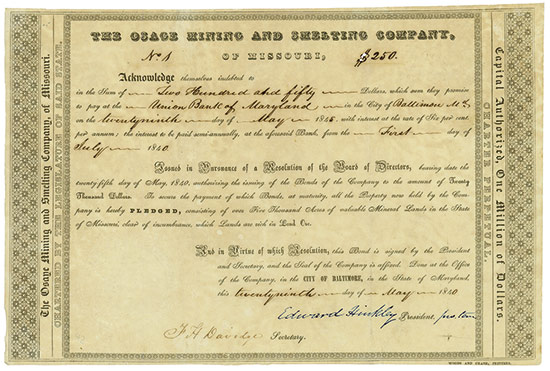 THE OSAGE MINING AND SMELTING COMPANY,
OF MISSOURI,
No. 1
$250.
Acknowledge themselves indebted to
in the Sum of Two Hundred and fifty Dollars, which sum they promise
to pay at the Union Bank of Maryland in the City of Baltimore Md.
on the twentyninth day of May 1845, with interest at the rate of Six per cent.
per annum; the interest to be paid semi-annually, at the aforesaid Bank, from the First day of
July 1840
Issued in Pursuance of a Resolution of the Board of Directors, bearing date the
twenty-fifth day of May, 1840, authorising the issuing of the Bonds of the Company to the amount of Twenty
Thousand Dollars. To secure the payment of which Bonds, at maturity, all the Property now held by the Company
is hereby PLEDGED, consisting of over Five Thousand Acres of valuable Mineral Lands in the State
of Missouri, clear of incumbrance, which Lands are rich in Lead Ore.
And in Virtue of which Resolution, this Bond is signed by the President
and Secretary, and the Seal of the Company is affixed. Done at the Office
of the Company, in the CITY OF BALTIMORE, in the State of Maryland,
this twentyninth day of May 1840
Edward Hinkley President, pro tem
F H Davidge Secretary.
The Osage Mining and Smelting Company, of Missouri.
CHARTERED BY THE LEGISLATURE OF SAID STATE.
Capital Authorized, One Million of Dollars.
CHARTER PERPETUAL.
WOODS AND CRANE, PRINTERS.